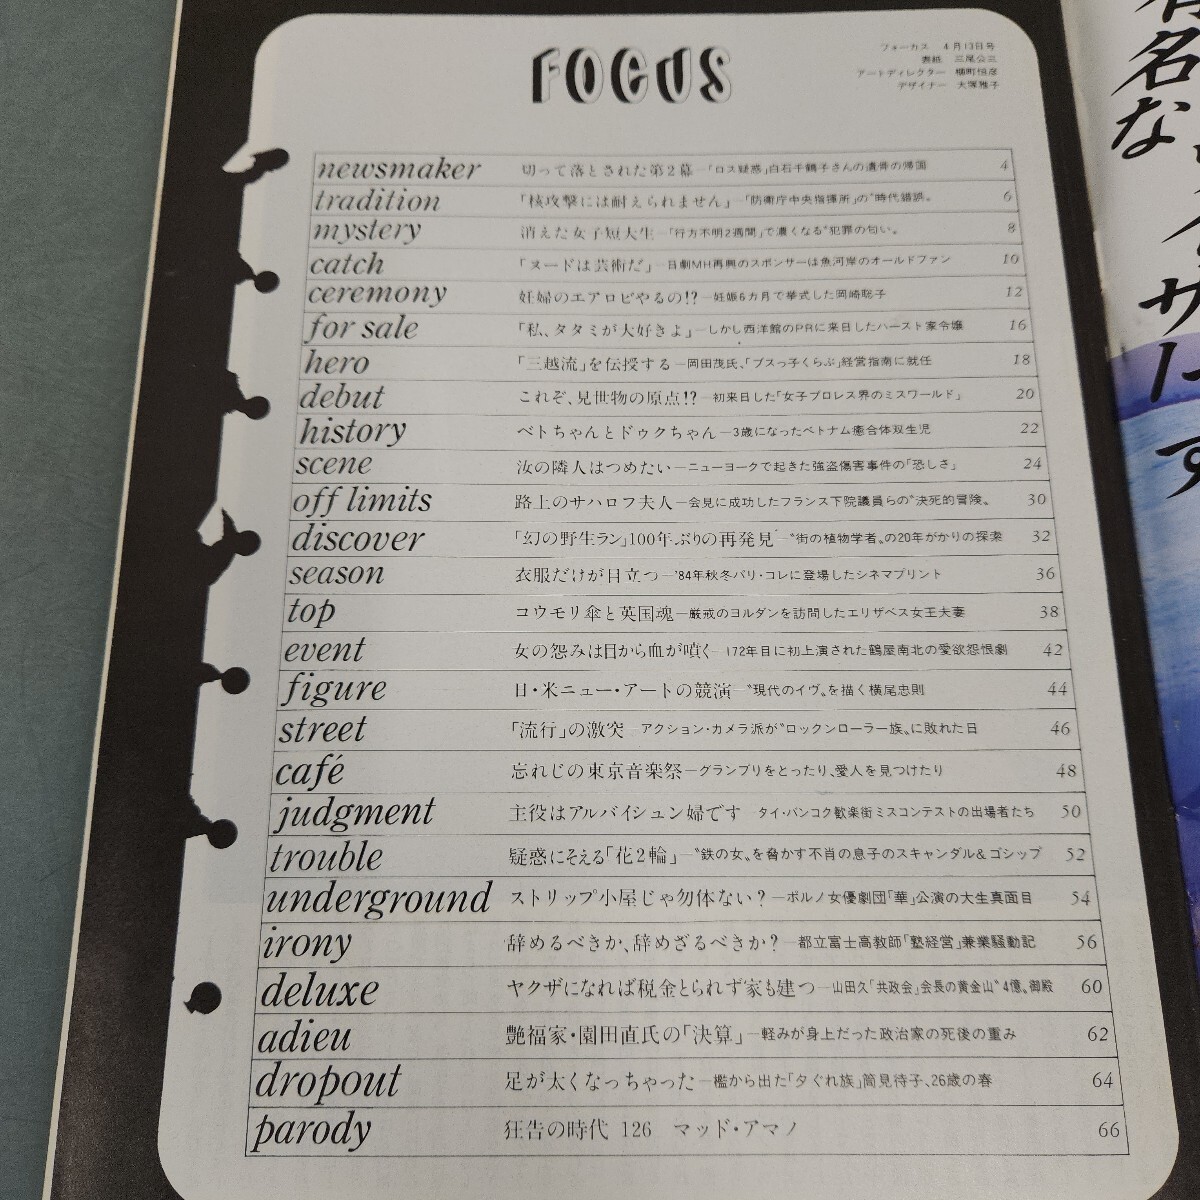 FOCUS
フォーカス 4月13日号
表紙 三尾公三
アートディレクター 横町恒彦
デザイナー 大塚雅子
newsmaker 切って落とされた第2幕―「ロス疑惑」白石千鶴子さんの遺骨の帰国 4
tradition 「核攻撃には耐えられません」―「防衛庁中央指揮所」の“時代錯誤” 6
mystery 消えた女子短大生―「行方不明2週間」で濃くなる“犯罪の匂い” 8
catch 「ヌードは芸術だ」―日劇MH再興のスポンサーは魚河岸のオールドファン 10
ceremony 妊婦のエアロビやるの!?―妊娠6カ月で挙式した岡崎聡子 12
for sale 「私、タタミが大好きよ」―しかし西洋館のPRに来日したハースト家令嬢 16
hero 「三越流」を伝授する―岡田茂氏、「ブスっ子くらぶ」経営指南に就任 18
debut これぞ、見世物の原点!?―初来日した「女子プロレス界のミスワールド」 20
history ベトちゃんとドゥクちゃん―3歳になったベトナム癒合体双生児 22
scene 汝の隣人はつめたい―ニューヨークで起きた強盗傷害事件の「恐しさ」 24
off limits 路上のサハロフ夫人―会見に成功したフランス下院議員らの“決死的冒険” 30
discover 「幻の野生ラン」100年ぶりの再発見―“街の植物学者”の20年がかりの探索 32
season 衣服だけが目立つ―'84年秋冬パリ・コレに登場したシネマプリント 36
top コウモリ傘と英国魂―厳戒のヨルダンを訪問したエリザベス女王夫妻 38
event 女の怨みは目から血が噴く―172年目に初上演された鶴屋南北の愛欲怨恨劇 42
figure 日・米ニュー・アートの競演―“現代のイヴ”を描く横尾忠則 44
street 「流行」の激突―アクション・カメラ派が“ロックンローラー族”に敗れた日 46
café 忘れじの東京音楽祭―グランプリをとったり、愛人を見つけたり 48
judgment 主役はアルバイシュン婦です―タイ・バンコク歓楽街ミスコンテストの出場者たち 50
trouble 疑惑にそえる「花2輪」―“鉄の女”を脅かす不肖の息子のスキャンダル&ゴシップ 52
underground ストリップ小屋じゃ勿体ない?―ポルノ女優劇団「華」公演の大生真面目 54
irony 辞めるべきか、辞めざるべきか?―都立富士高教師「塾経営」兼業騒動記 56
deluxe ヤクザになれば税金とられず家も建つ―山田久「共政会」会長の黄金山“4億”御殿 60
adieu 艶福家・園田直氏の「決算」―軽みが身上だった政治家の死後の重み 62
dropout 足が太くなっちゃった―檻から出た「夕ぐれ族」筒見待子、26歳の春 64
parody 狂告の時代 126 マッド・アマノ 66
有名な